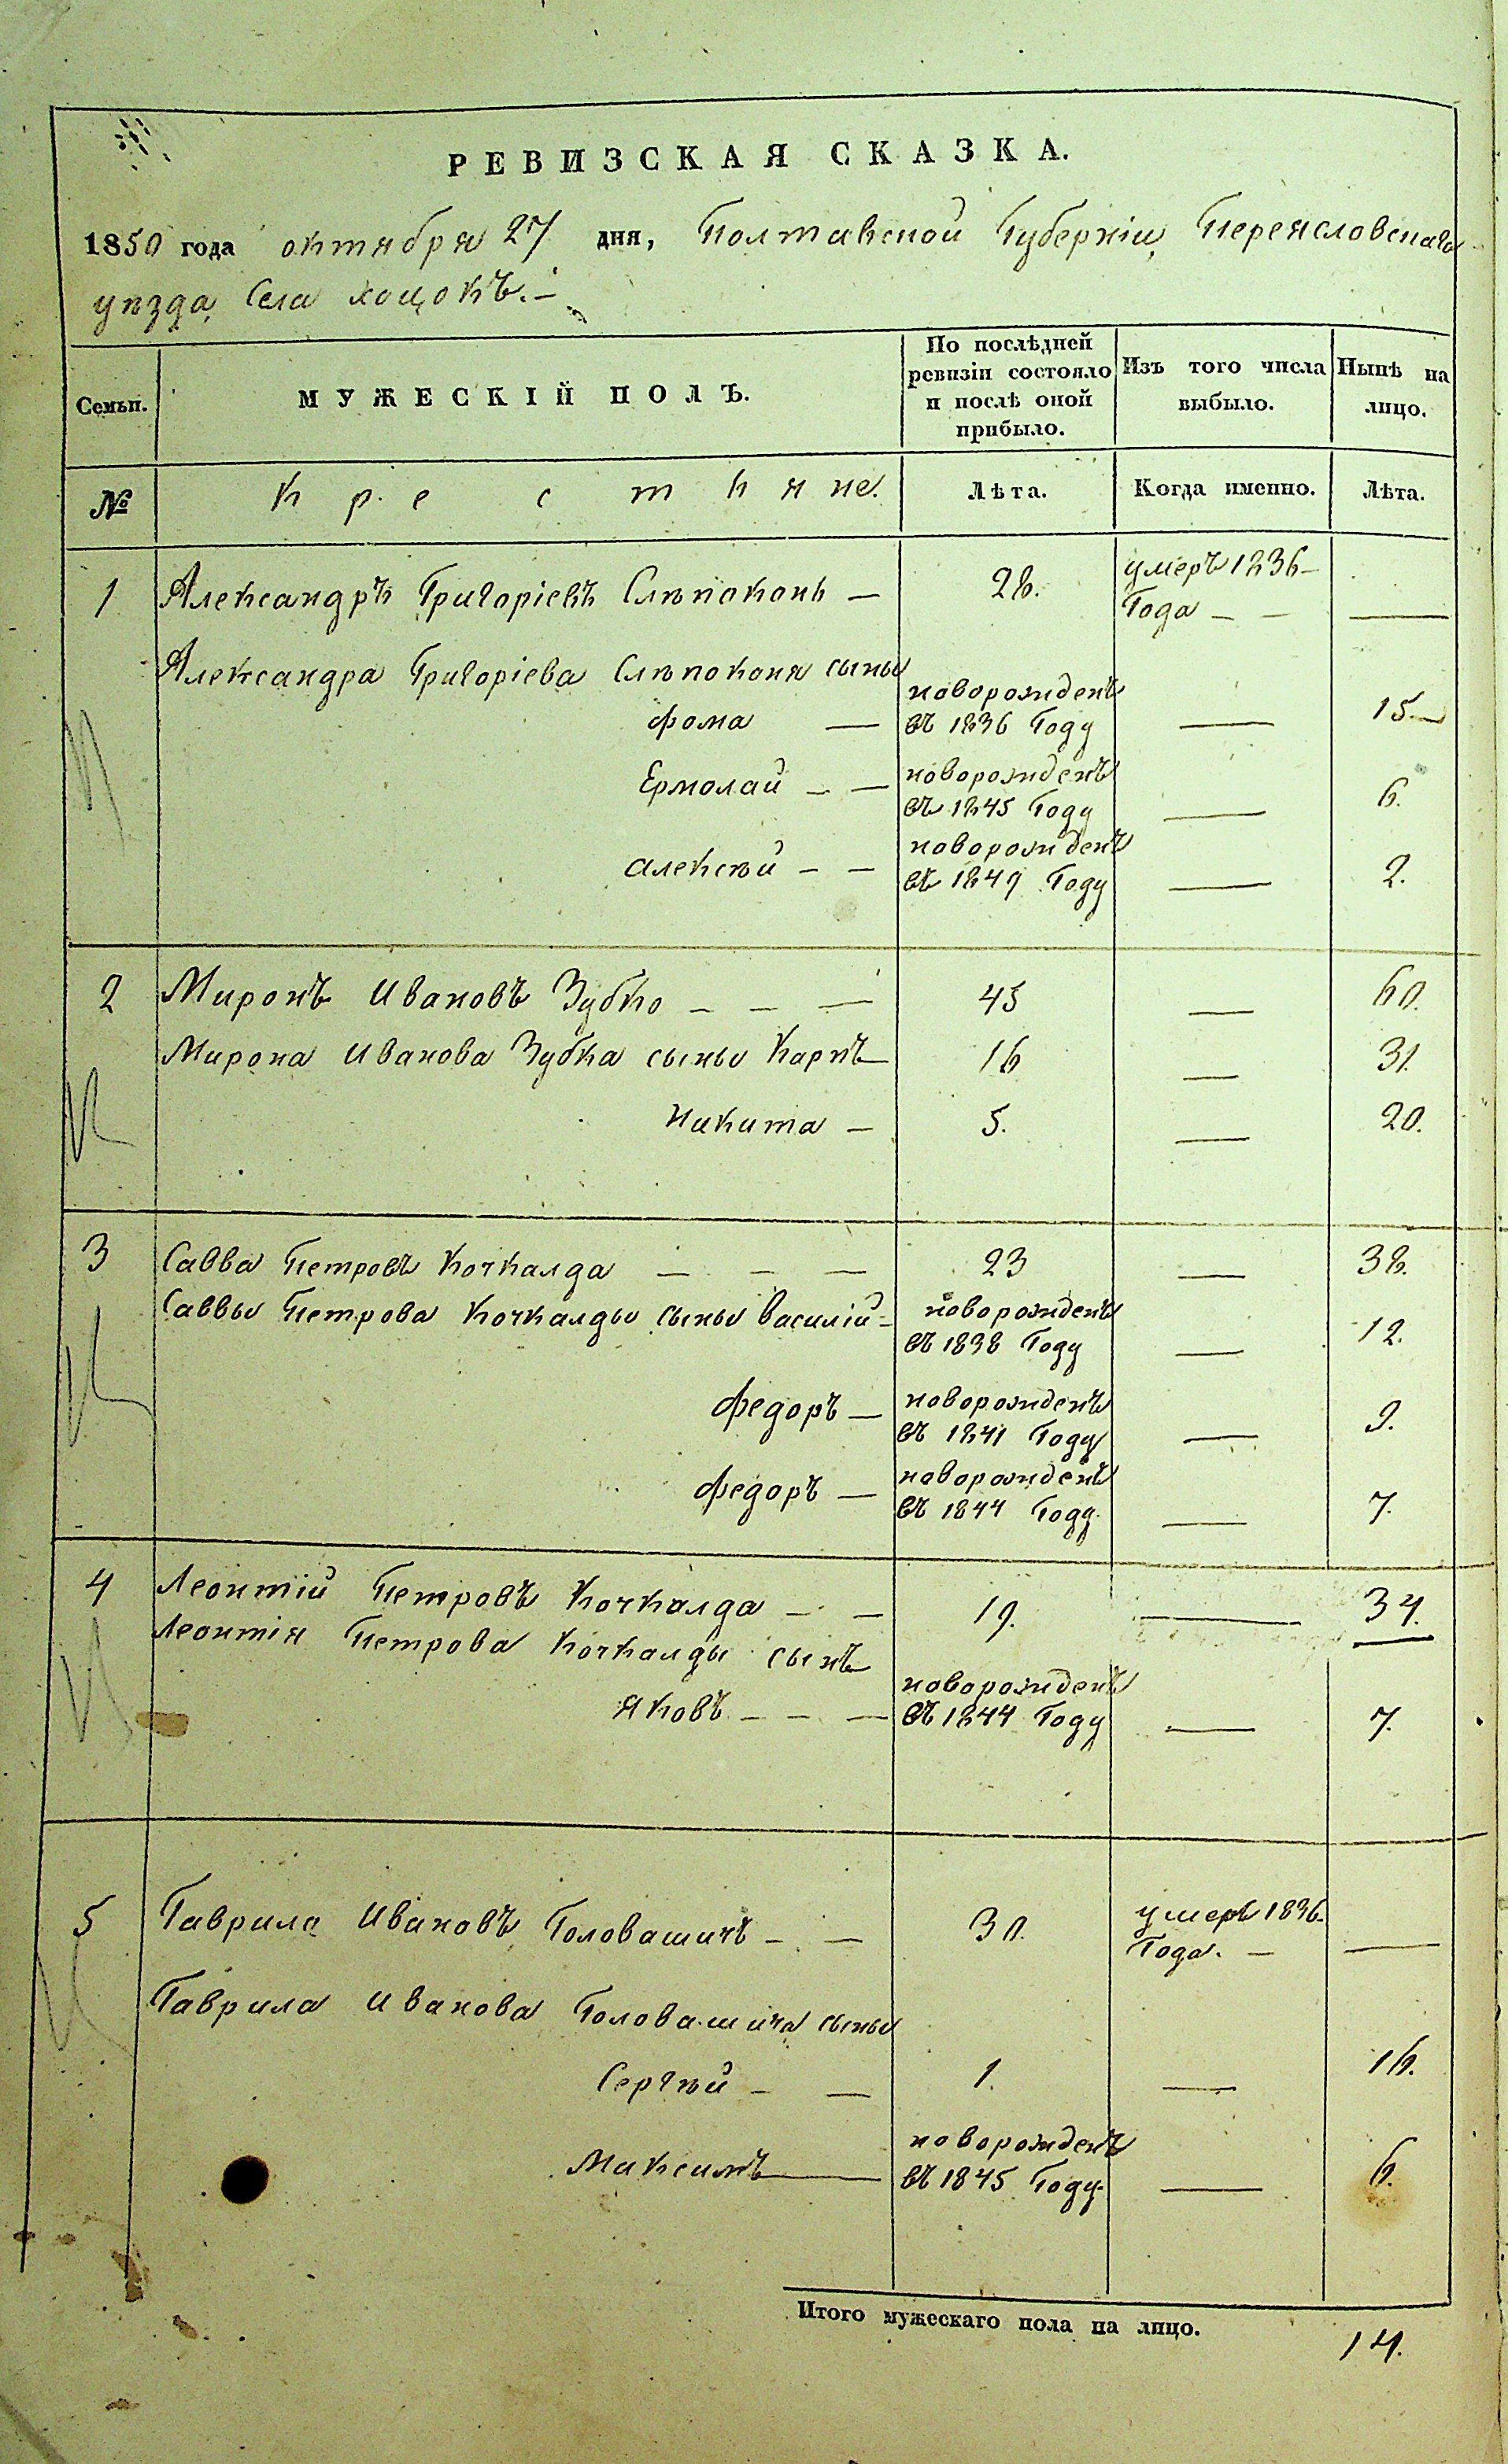 РЕВИЗСКАЯ СКАЗКА.
1850 года октября 27 дня, Полтавской Губерніи, Переясловскаго
уѣзда, Села Хоцокъ.-
Семьи. МУЖЕСКІЙ ПОЛЪ. По послѣдней ревизіи состояло и послѣ оной прибыло. Изъ того числа выбыло. Нынѣ на лицо.
№ Крестьяне. Лѣта. Когда именно. Лѣта.
1 Александръ Григоріевъ Слѣпоконь — 28. умеръ 1836 —
Года — — —
Александра Григоріева Слѣпоконя сыны
Фома — новорожденъ въ 1836 Году — 15. —
Ермолай — — новорожденъ въ 1845 Году — 6.
Алексѣй — — новорожденъ въ 1849 Году — 2.
2 Миронъ Ивановъ Зубко — — — 45 — 60.
Мирона Иванова Зубка сыны Карпъ — 16 — 31.
Никита — 5. — 20.
3 Савва Петровъ Кочкалда — — — 23 — 38.
Саввы Петрова Кочкалды сыны Василій — новорожденъ въ 1838 Году — 12.
Федоръ — новорожденъ въ 1841 Году — 9.
Федоръ — новорожденъ въ 1844 Году — 7.
4 Леонтій Петровъ Кочкалда — — 19. — 34.
Леонтія Петрова Кочкалды сынъ
Яковъ — — — новорожденъ въ 1844 Году — 7.
5 Гаврила Ивановъ Головашичъ — — 30. умеръ 1836.
Года. — —
Гаврила Иванова Головашича сыны
Сергѣй — — 1. — 16.
Максимъ — новорожденъ въ 1845 Году. — 6.
Итого мужескаго пола на лицо. 14.